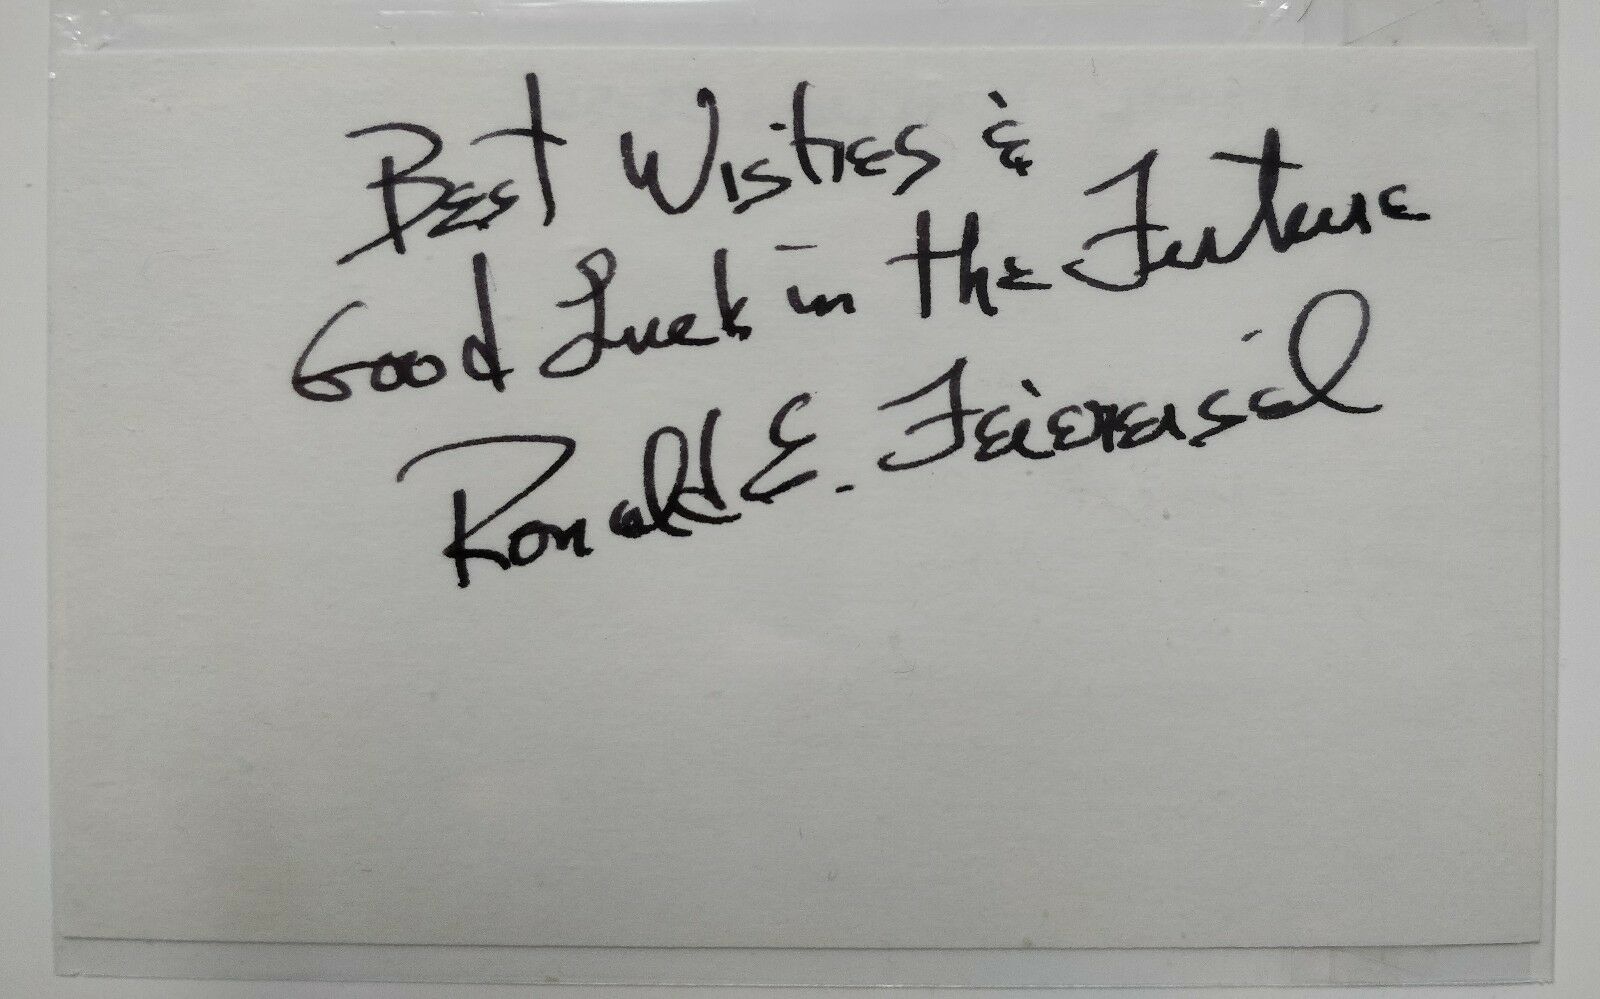 Best Wishes &
Good Luck in the Future
Ronald E. Feiereisel